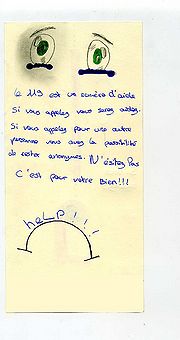 Le 119 est un numéro d'aide
Si vous appelez vous serez aidez.
Si vous appelez pour une autre
personne vous avez la possibilité
de rester anonymes. N'ésitez Pas
C'est pour votre Bien!!!
heLP!!!